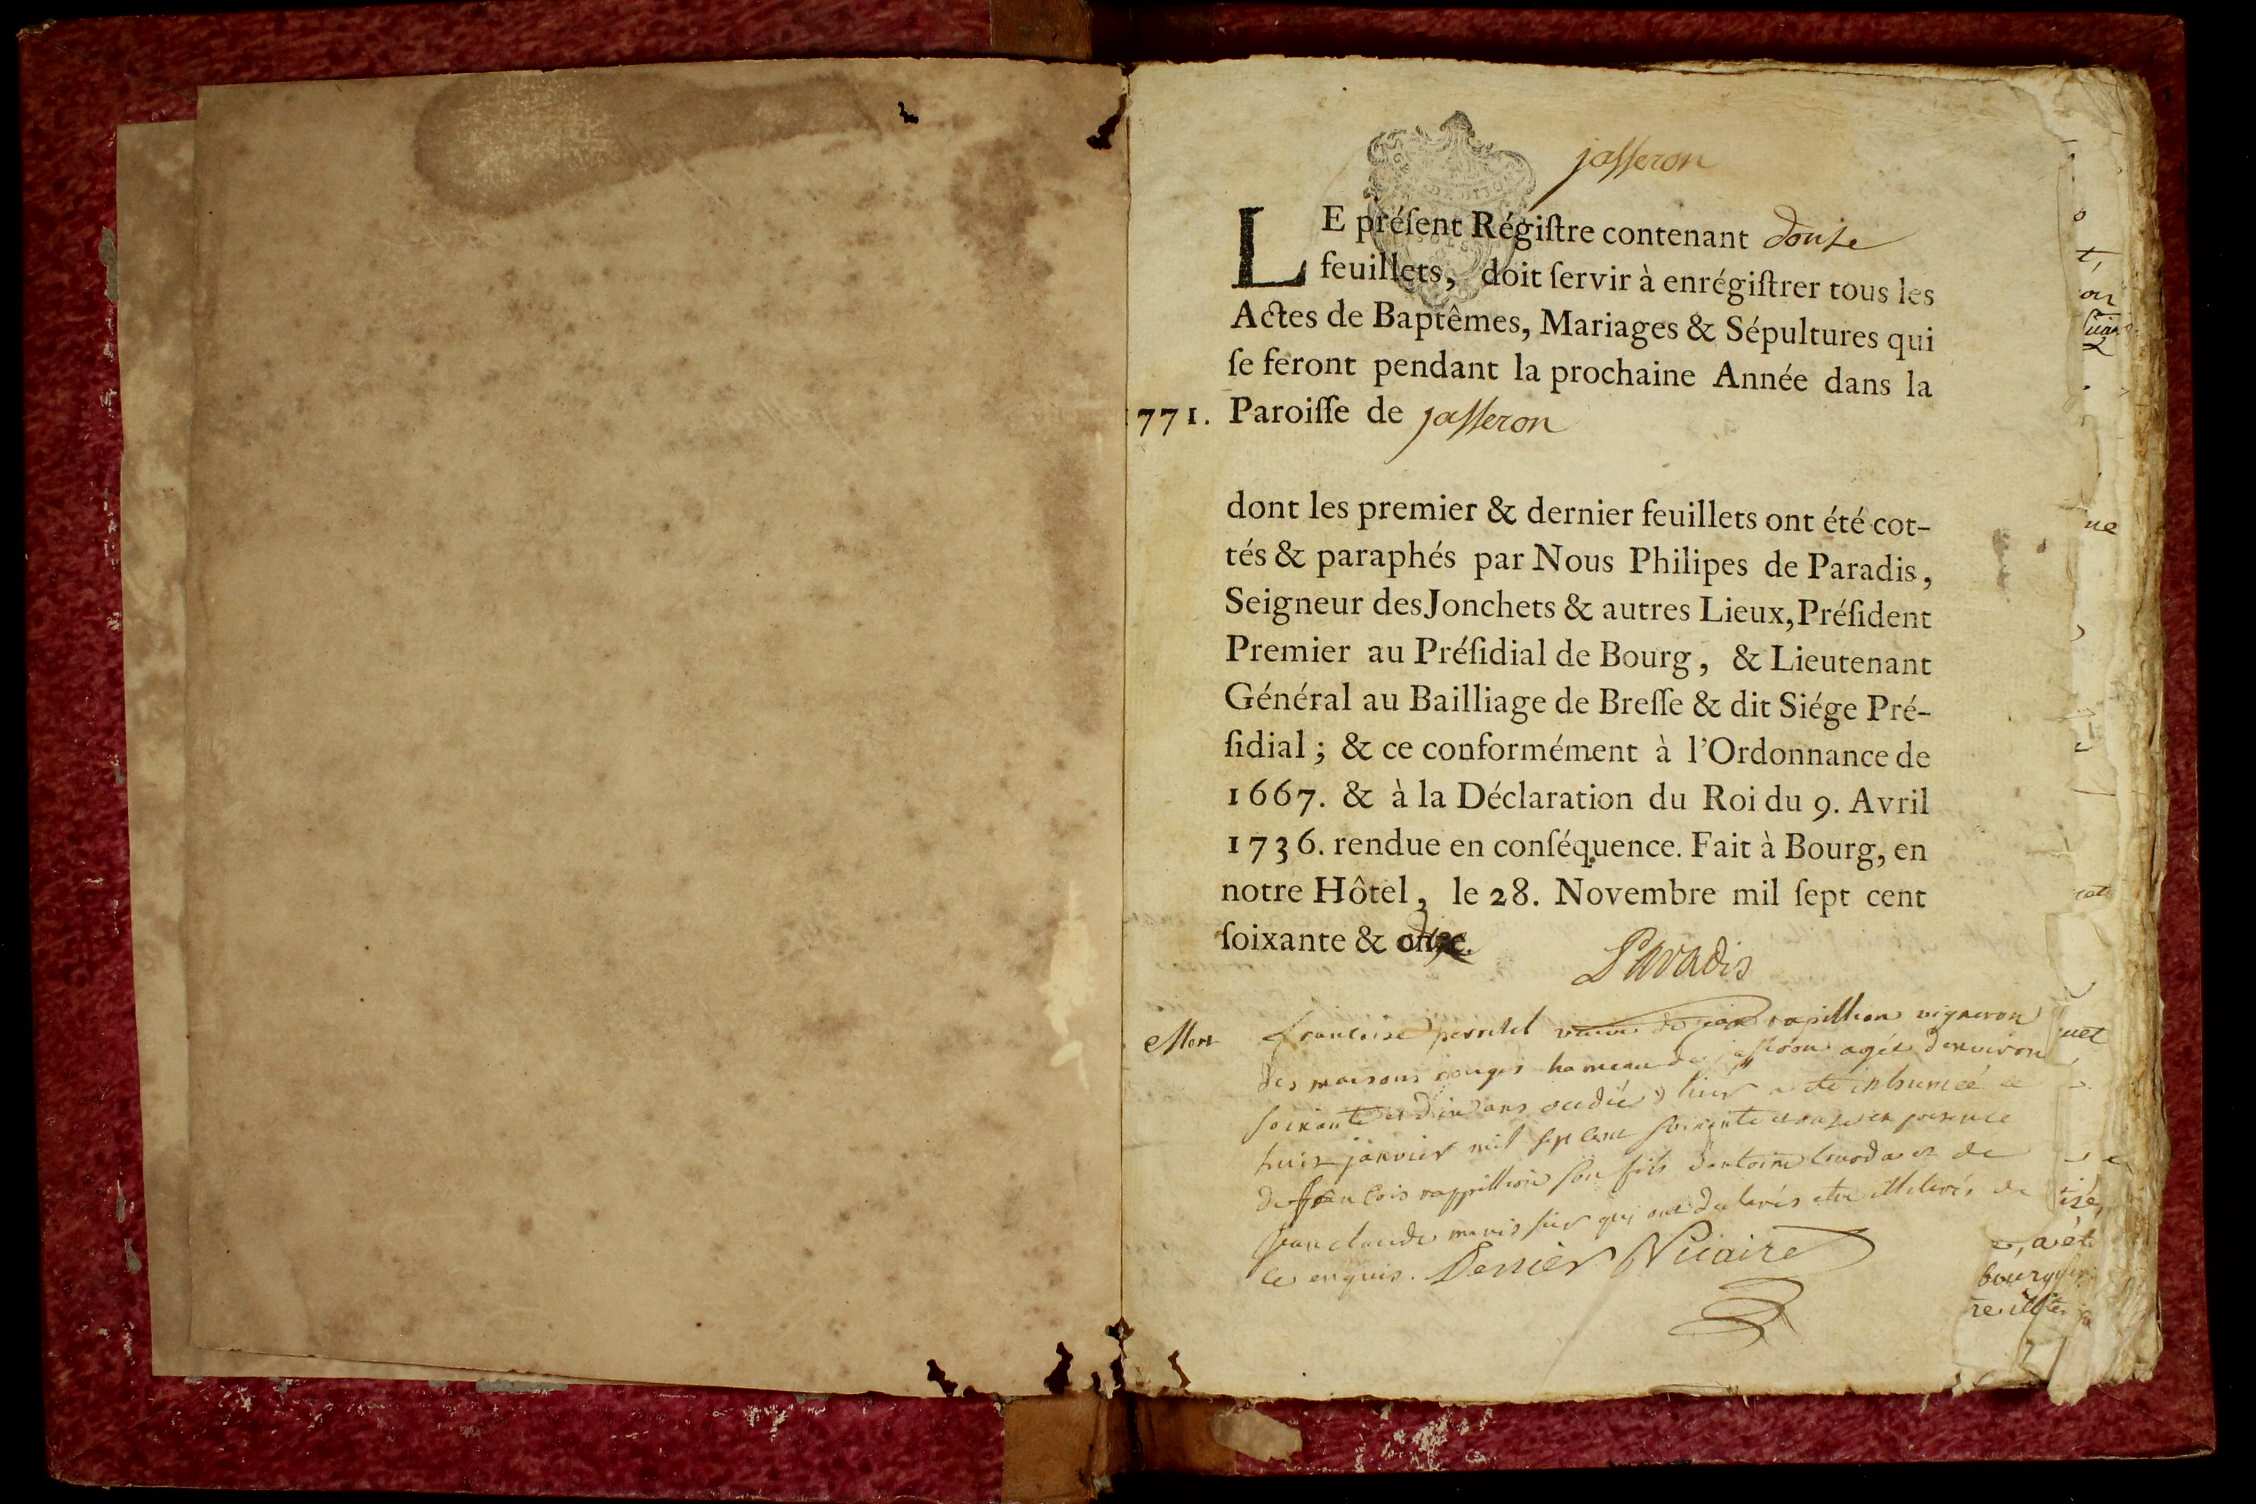 jasseron
LE préſent Régiſtre contenant douze
feuillets, doit ſervir à enrégiſtrer tous les
Actes de Baptêmes, Mariages & Sépultures qui
ſe feront pendant la prochaine Année dans la
771. Paroiſſe de jasseron
dont les premier & dernier feuillets ont été cot-
tés & paraphés par Nous Philipes de Paradis,
Seigneur des Jonchets & autres Lieux, Préſident
Premier au Préſidial de Bourg, & Lieutenant
Général au Bailliage de Breſſe & dit Siége Pré-
ſidial ; & ce conformément à l'Ordonnance de
1667. & à la Déclaration du Roi du 9. Avril
1736. rendue en conſéquence. Fait à Bourg, en
notre Hôtel, le 28. Novembre mil ſept cent
ſoixante &
Paradis
Mort francoise rapillion vigneron
des maisons rouges hameau de jasseron agée denviron
soixante et dix ans a été inhumée le
huit janvier mil sept cent soixante et onze en presence
de francois rappillion son fils dantoine et de
jean claude qui ont declarés etre illiterés de
ce enquis. Perrier Vicaire